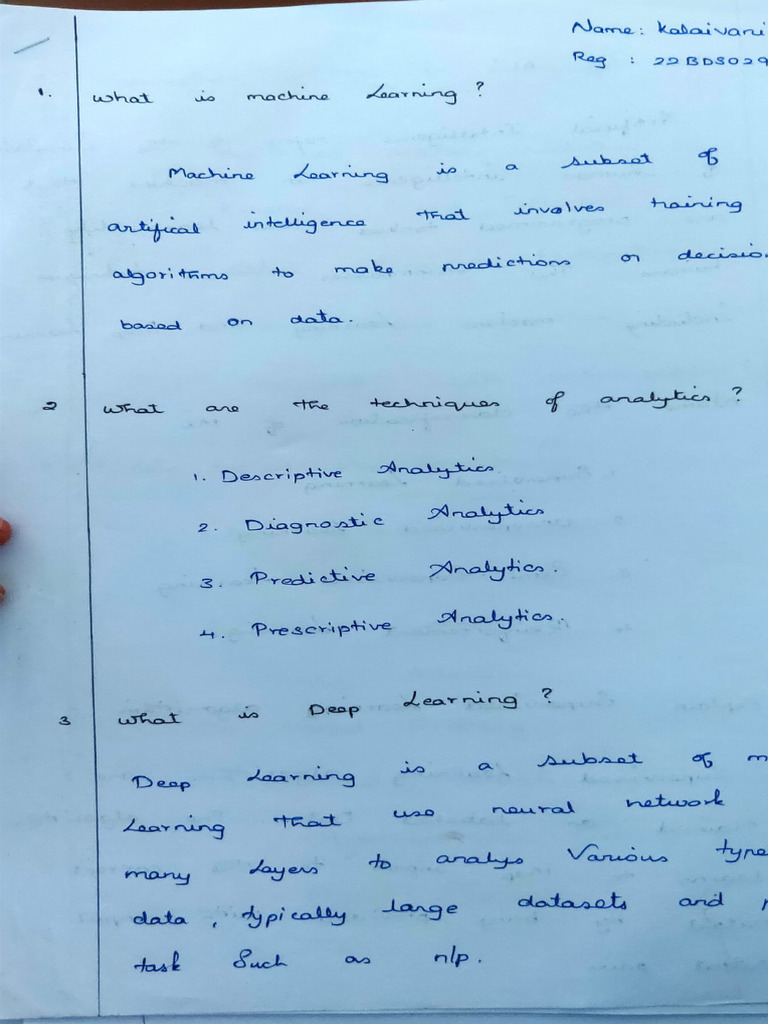 Name: Kalaivani
Reg : 22BDS029
1. what is machine Learning ?
Machine Learning is a subset of
artifical intelligence that involves training
algorithms to make predictions or decisio
based on data.
2 what are the techniques of analytics ?
1. Descriptive Analytics
2. Diagnostic Analytics
3. Predictive Analytics.
4. Prescriptive Analytics.
3 what is Deep Learning ?
Deep Learning is a subset of m
Learning that use neural network
many layers to analys Various type
data, typically large datasets and
task Such as nlp.